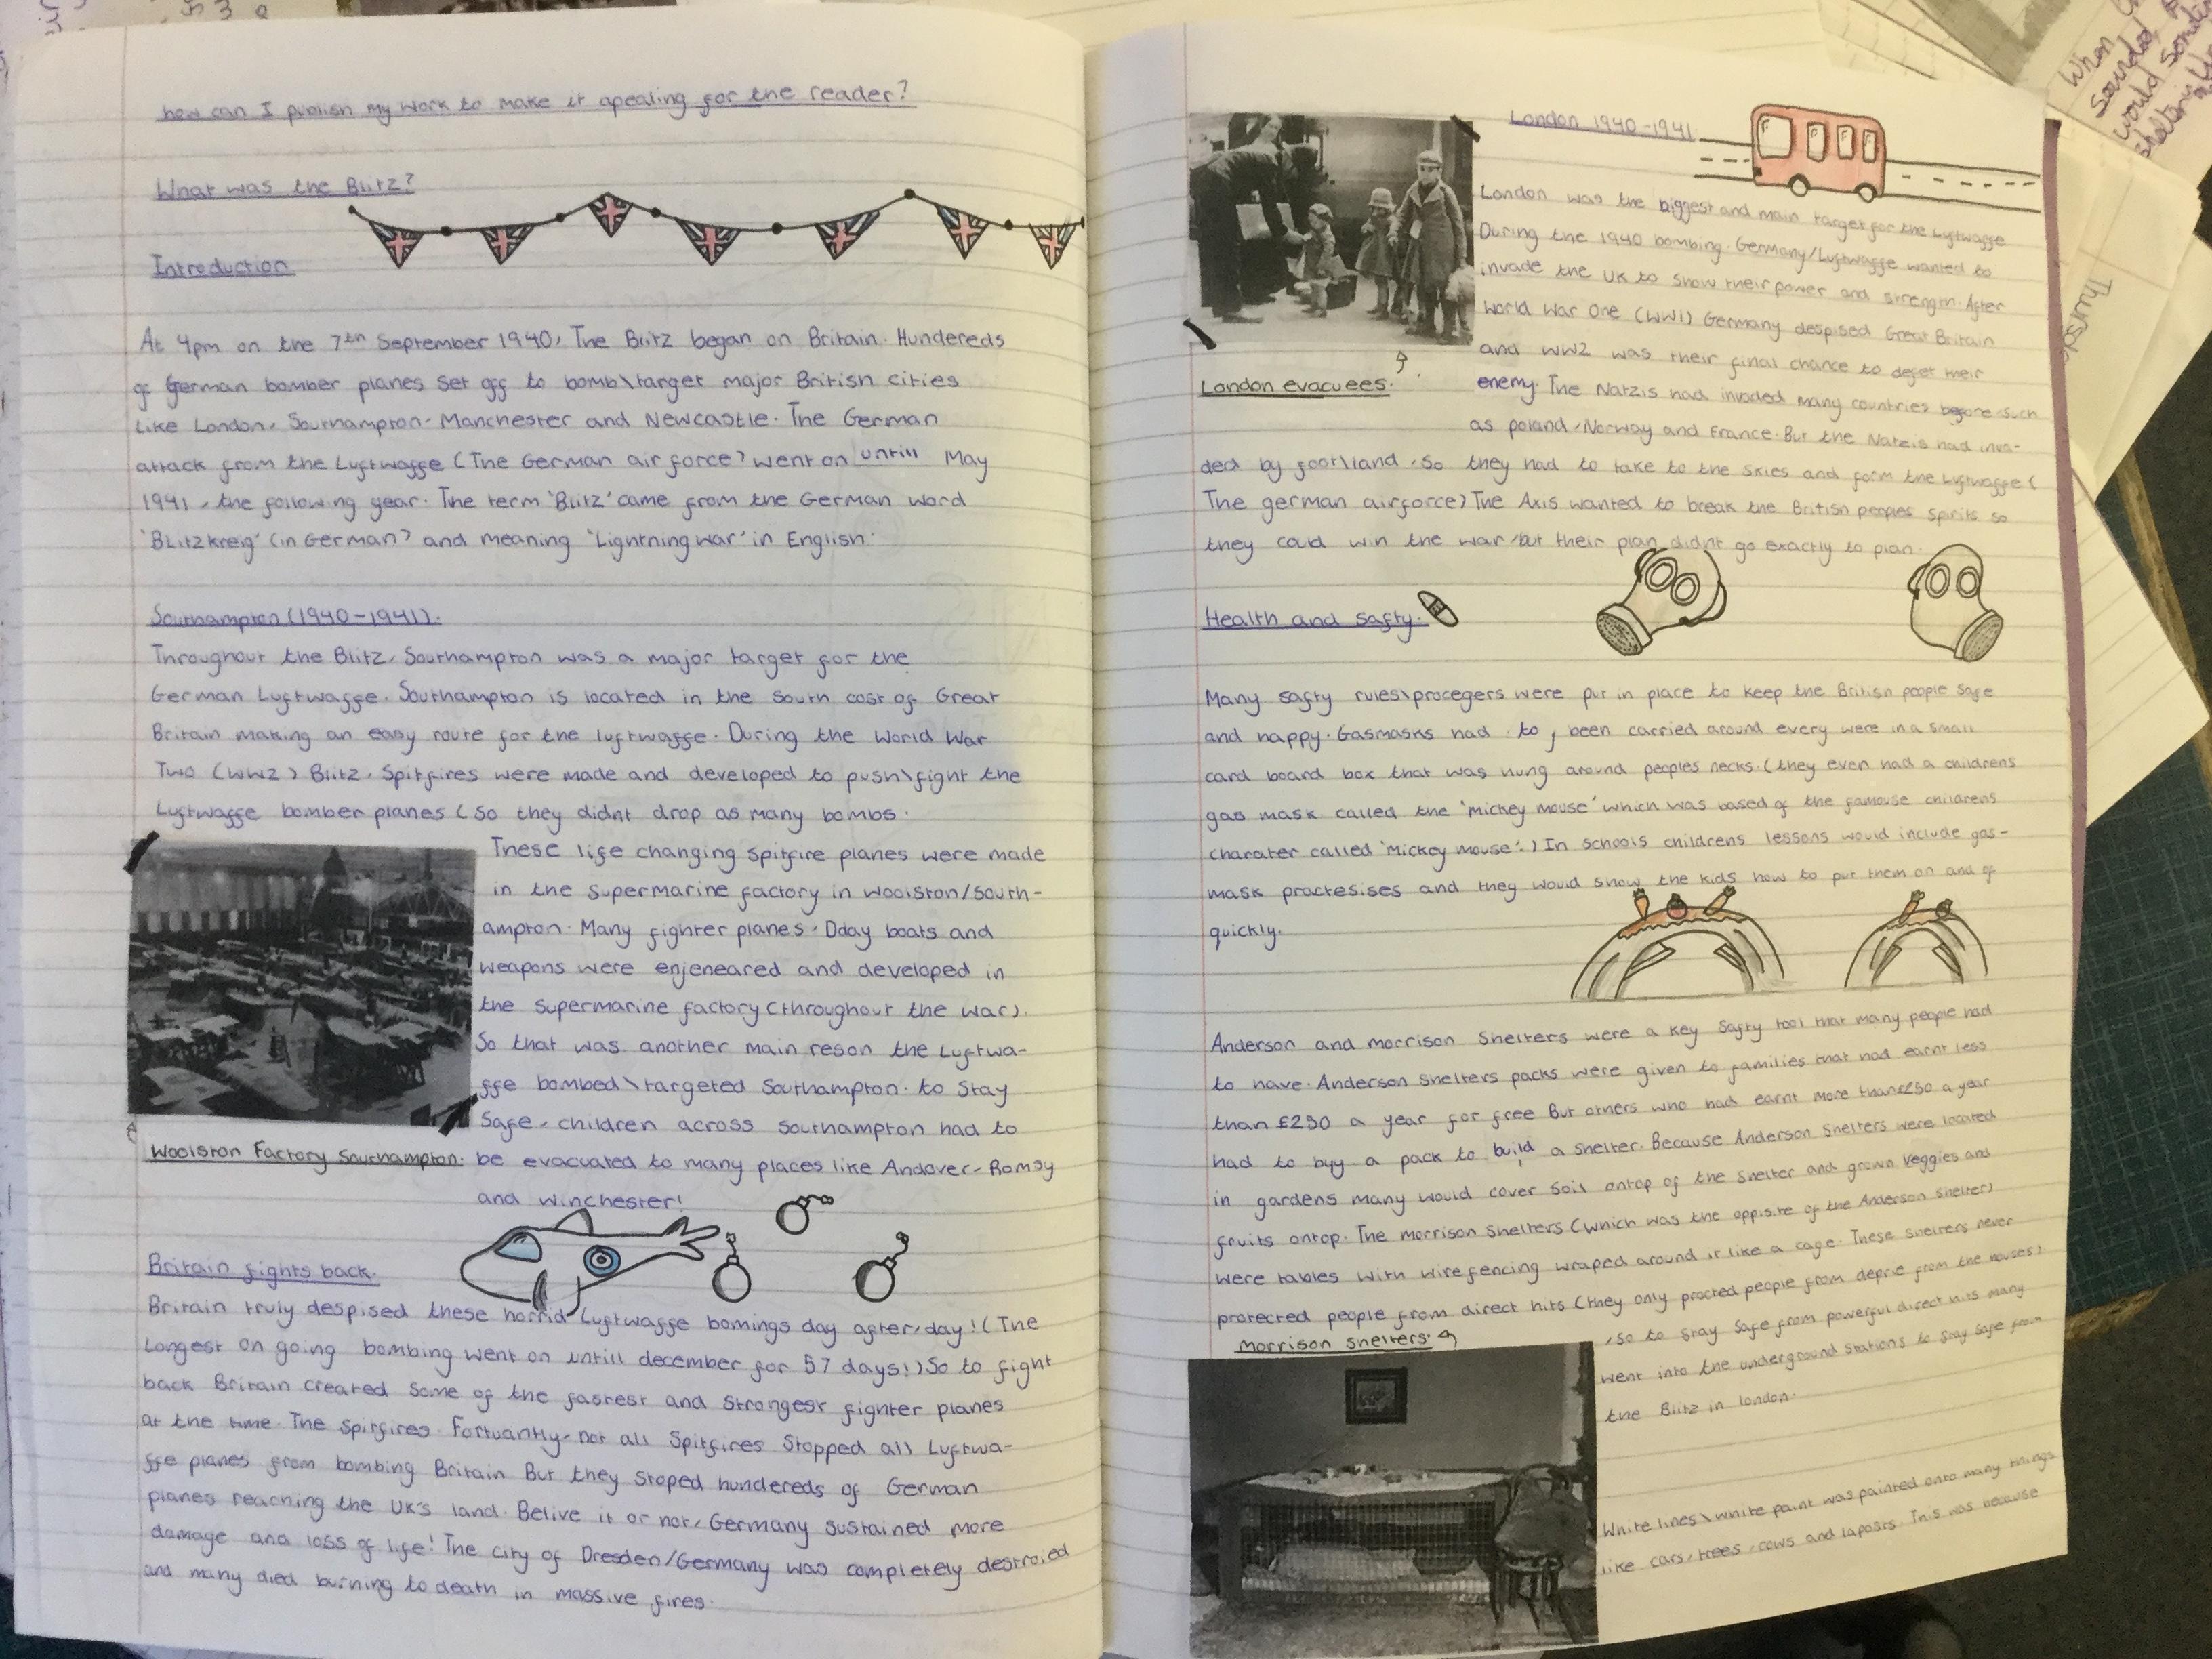 how can I publish my work to make it apealing for the reader?
What was the Blitz?
Introduction
At 4pm on the 7th September 1940, The Blitz began on Britain. Hundereds
of German bomber planes set off to bomb\target major British cities
like London, Southampton, Manchester and Newcastle. The German
attack from the Luftwaffe (The German air force) went on untill May
1941, the following year. The term 'Blitz' came from the German word
'Blitzkreig' (in German) and meaning 'Lightning war' in English.
Southampton (1940-1941).
Throughout the Blitz, Southampton was a major target for the
German Luftwaffe. Southampton is located in the South cost of Great
Britain making an easy route for the luftwaffe. During the World War
Two (WW2) Blitz, Spitfires were made and developed to push\fight the
Luftwaffe bomber planes (So they didnt drop as many bombs.
These life changing Spitfire planes were made
in the supermarine factory in Woolston/South-
ampton. Many fighter planes, Dday boats and
weapons were enjeneared and developed in
the supermarine factory (throughout the war).
So that was another main reson the Luftwa-
ffe bombed\targeted Southampton. to Stay
Safe, children across Southampton had to
Woolston Factory Southampton.
be evacuated to many places like Andover, Romsy
and Winchester!
Britain fights back.
Britain truly despised these horrid Luftwaffe bomings day after day! (The
Longest on going bombing went on untill december for 57 days!) So to fight
back Britain created some of the fastest and Strongest fighter planes
at the time. The Spitfires. Fortuantly, not all Spitfires Stopped all Luftwa-
ffe planes from bombing Britain But they stoped hundereds of German
planes reaching the UK's land. Belive it or not, Germany sustained more
damage and loss of life! The city of Dresden/Germany was completely destroied
and many died burning to death in massive fires.
London 1940-1941
London was the biggest and main target for the Luftwaffe
During the 1940 bombing. Germany/Luftwaffe wanted to
invade the UK to show their power and strength. After
World War One (WW1) Germany despised Great Britain
and WW2 was their final chance to defet their
London evacuees.
enemy. The Natzis had invaded many countries before such
as poland, Norway and France. But the Natzis had inva-
ded by foot\land, So they had to take to the skies and form the Luftwaffe (
The german airforce) The Axis wanted to break the British peoples spirits so
they could win the war, but their plan didnt go exactly to plan.
Health and safty.
Many safty rules\procegers were put in place to keep the British people safe
and happy. Gasmasks had to, been carried around every were in a small
card board box that was hung around peoples necks. (they even had a childrens
gas mask called the 'mickey mouse' which was based of the famouse childrens
charater called 'mickey mouse'.) In schools childrens lessons would include gas-
mask practesises and they would show the kids how to put them on and of
quickly.
Anderson and morrison Shelters were a key Safty tool that many people had
to have. Anderson Shelters packs were given to families that had earnt less
than £250 a year for free But others who had earnt more than £250 a year
had to buy a pack to build a shelter. Because Anderson Shelters were located
in gardens many would cover soil ontop of the shelter and grown veggies and
fruits ontop. The morrison Shelters (which was the oppisite of the Anderson Shelter)
were tables with wire fencing wraped around it like a cage. These shelters never
protected people from direct hits (they only procted people from deprie from the houses)
morrison shelters.
, so to stay safe from powerful direct hits many
went into the underground stations to stay safe from
the Blitz in london.
White lines\white paint was painted onto many things
like cars, trees, cows and laposts. This was because
When
sounded,
would
Thursd